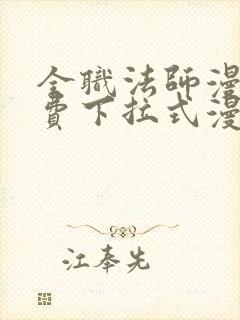 全職法師漫
費下拉式漫
江奉先